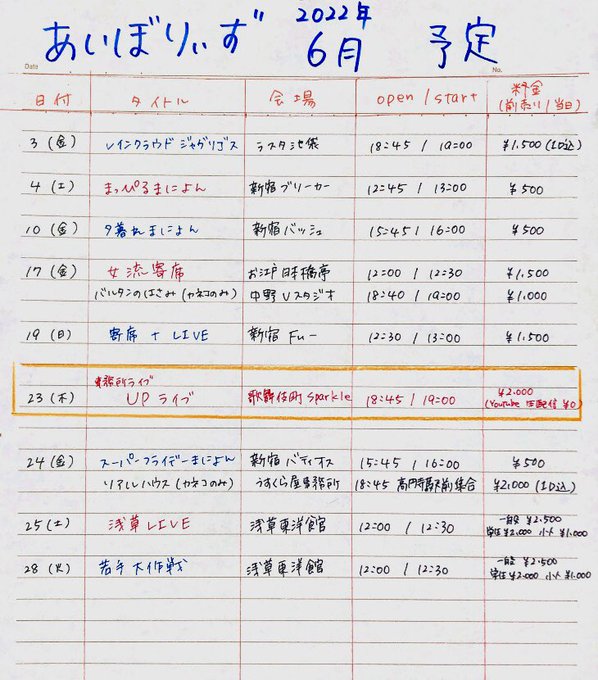 あいぼりぃず 2022年 6月 予定
Date No.
日付 タイトル 会場 open / start 料金 (前売り / 当日)
3 (金) レインクラウド ジャグリゴス ラスタ池袋 18:45 / 19:00 ¥1,500 (1D込)
4 (土) まっぴるまにょん 新宿ブリーカー 12:45 / 13:00 ¥500
10 (金) 夕暮れまにょん 新宿バッシュ 15:45 / 16:00 ¥500
17 (金) 女流寄席 お江戸日本橋亭 12:00 / 12:30 ¥1,500
バルタンのはさみ (カネコのみ) 中野Vスタジオ 18:40 / 19:00 ¥1,000
19 (日) 寄席 + LIVE 新宿 Fu- 12:30 / 13:00 ¥1,500
事務所ライブ
23 (木) UPライブ 歌舞伎町 Sparkle 18:45 / 19:00 ¥2,000
(Youtube 生配信 ¥0)
24 (金) スーパーフライデーまにょん 新宿バティオス 15:45 / 16:00 ¥500
リアルハウス (カネコのみ) うすくら屋事務所 18:45 高円寺駅前集合 ¥2,000 (1D込)
25 (土) 浅草LIVE 浅草東洋館 12:00 / 12:30 一般 ¥2,500
学生 ¥2,000 小人 ¥1,000
28 (火) 若手大作戦 浅草東洋館 12:00 / 12:30 一般 ¥2,500
学生 ¥2,000 小人 ¥1,000